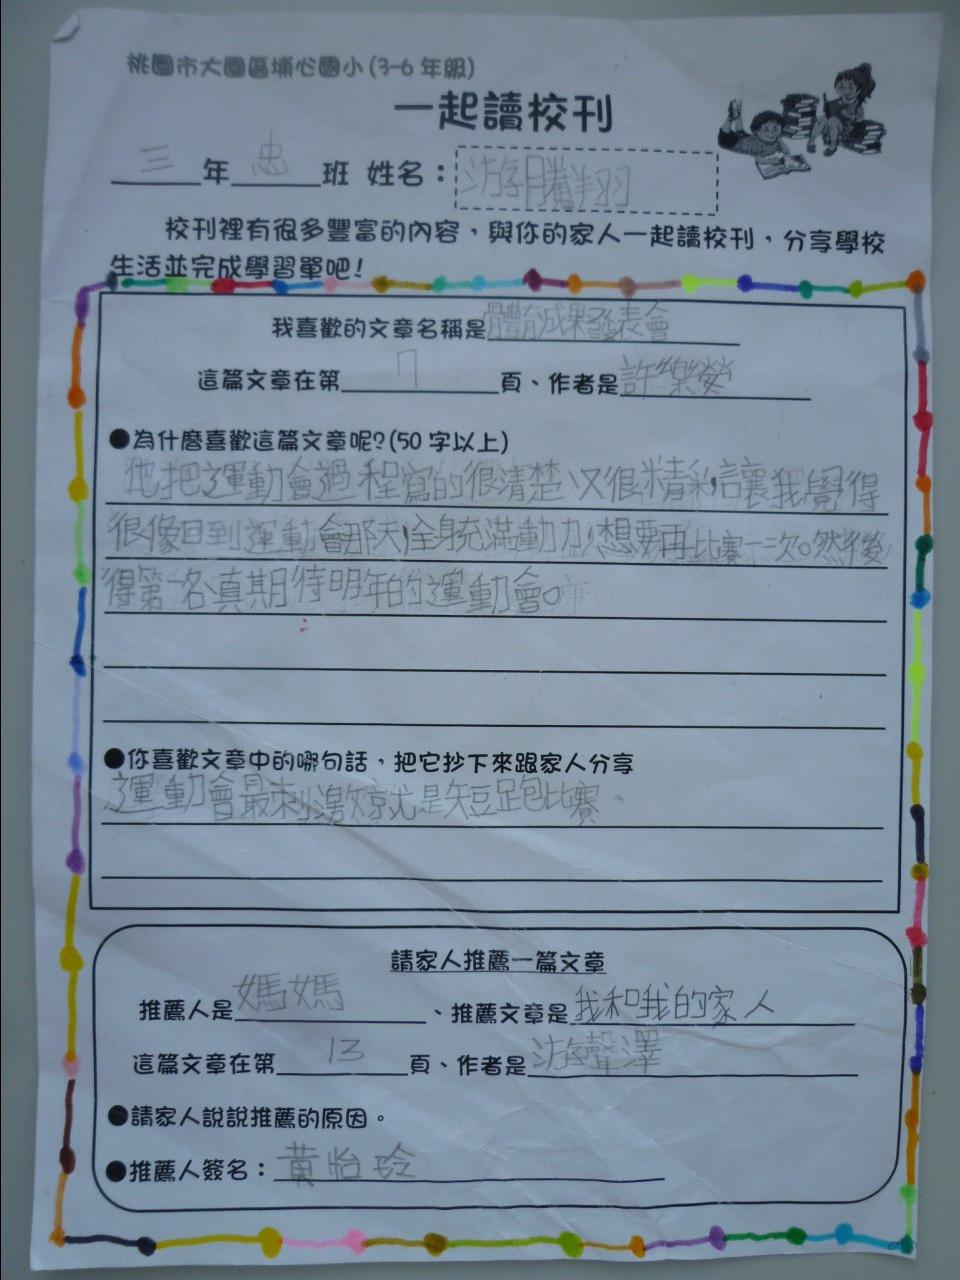 桃園市大園區埔心國小(3-6年級)
一起讀校刊
三年忠班 姓名：游騰翔
校刊裡有很多豐富的內容，與你的家人一起讀校刊，分享學校
生活並完成學習單吧！
我喜歡的文章名稱是體育成果發表會
這篇文章在第7頁、作者是許樂
●為什麼喜歡這篇文章呢？(50字以上)
他把運動會過程寫的很清楚又很精彩，讓我覺得
很像回到運動會那天，全身充滿動力，想要再比賽一次。然後
得第一名真期待明年的運動會。
●你喜歡文章中的哪句話，把它抄下來跟家人分享
運動會最刺激就是短跑比賽
請家人推薦一篇文章
推薦人是媽媽、推薦文章是我和我的家人
這篇文章在第13頁、作者是游聲澤
●請家人說說推薦的原因。
●推薦人簽名：黃怡玲